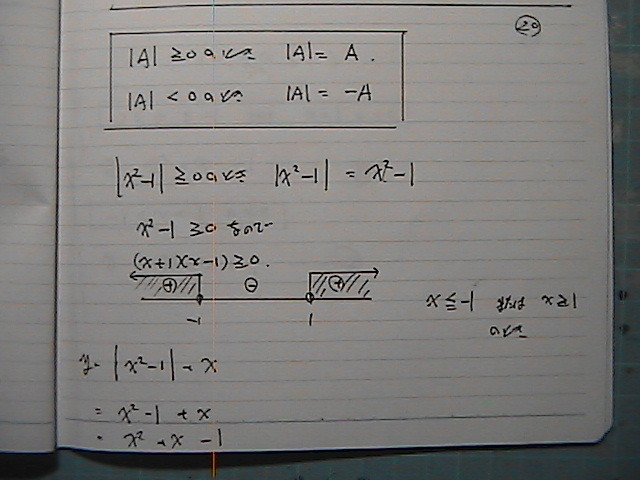 20
|A| ≧0のとき |A|= A.
|A| <0のとき |A|= -A
|x²-1| ≧0のとき |x²-1| = x²-1
x²-1 ≧0 なので
(x+1)(x-1)≧0.
⊕ ⊖ ⊕
-1 1
x≦-1 または x≧1
のとき
y= |x²-1|+x
= x²-1+x
= x²+x-1